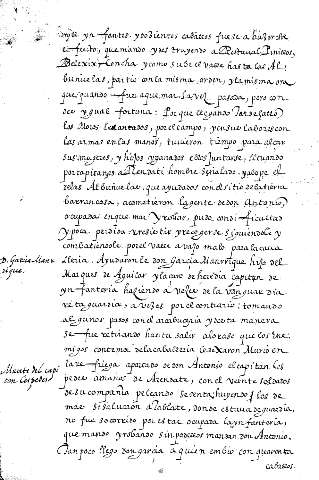 ynfantes, y dosientos caballos fuese a buscar el
efeito, que mando y destruyendo a Restaval, Pinillos,
Belexix, Concha, y como sube el valle hasta las Al,
buñuelas, partio con la misma orden, y la misma ora
que quando fue aquemar la vez pasada, pero con
des ygual fortuna: Porque llegando tarde salio,
los Moros levantados, por el campo, y en sus labores con
las armas en las manos, tuvieron tiempo para alçar
sus mugeres, y hijos y ganados, ellos juntarse, llevando
por capitanes a Rendati hombre señalado, y a lope el
de las Albuñuelas, que ayudados con el sitio de la tierra
barrancosa, acometieron la gente de don Antonio,
ocupada en quemar y robar, pudo con dificultad
y poca perdida resistir y recogerse siguiendole y
combatiendole, por el valle a vajo malo para la cava
lleria. Ayudaronle don Garçia Manrrique hijo del
Marques de Aguilar y laçaro de heredia capitan de
ynfanteria haziendo a vezes de la vanguardia
retaguardia, a vezes por el contrario: tomando
algunos pasos con el arcabuzeria y desta manera
se fue retirando hasta salir alo raso que los Ene
migos con temor de la caballeria le dexaron. Murio en
la refriega apartado de don Antonio el capitan les
pedes a manos de Rendate, con el veinte soldados
de su compañia peleando, sesenta huyendo, los de
mas se salvaron a Tablate, donde estava de guardia,
no fue socorrido por estar ocupada la ynfanteria,
quemando y robando sin podellos mandar don Antonio.
Tan poco llego don garçia a quien embio con quarenta
caballos.
D. Garçia Manr
rique.
Muerte del capi
tan Cespedes.